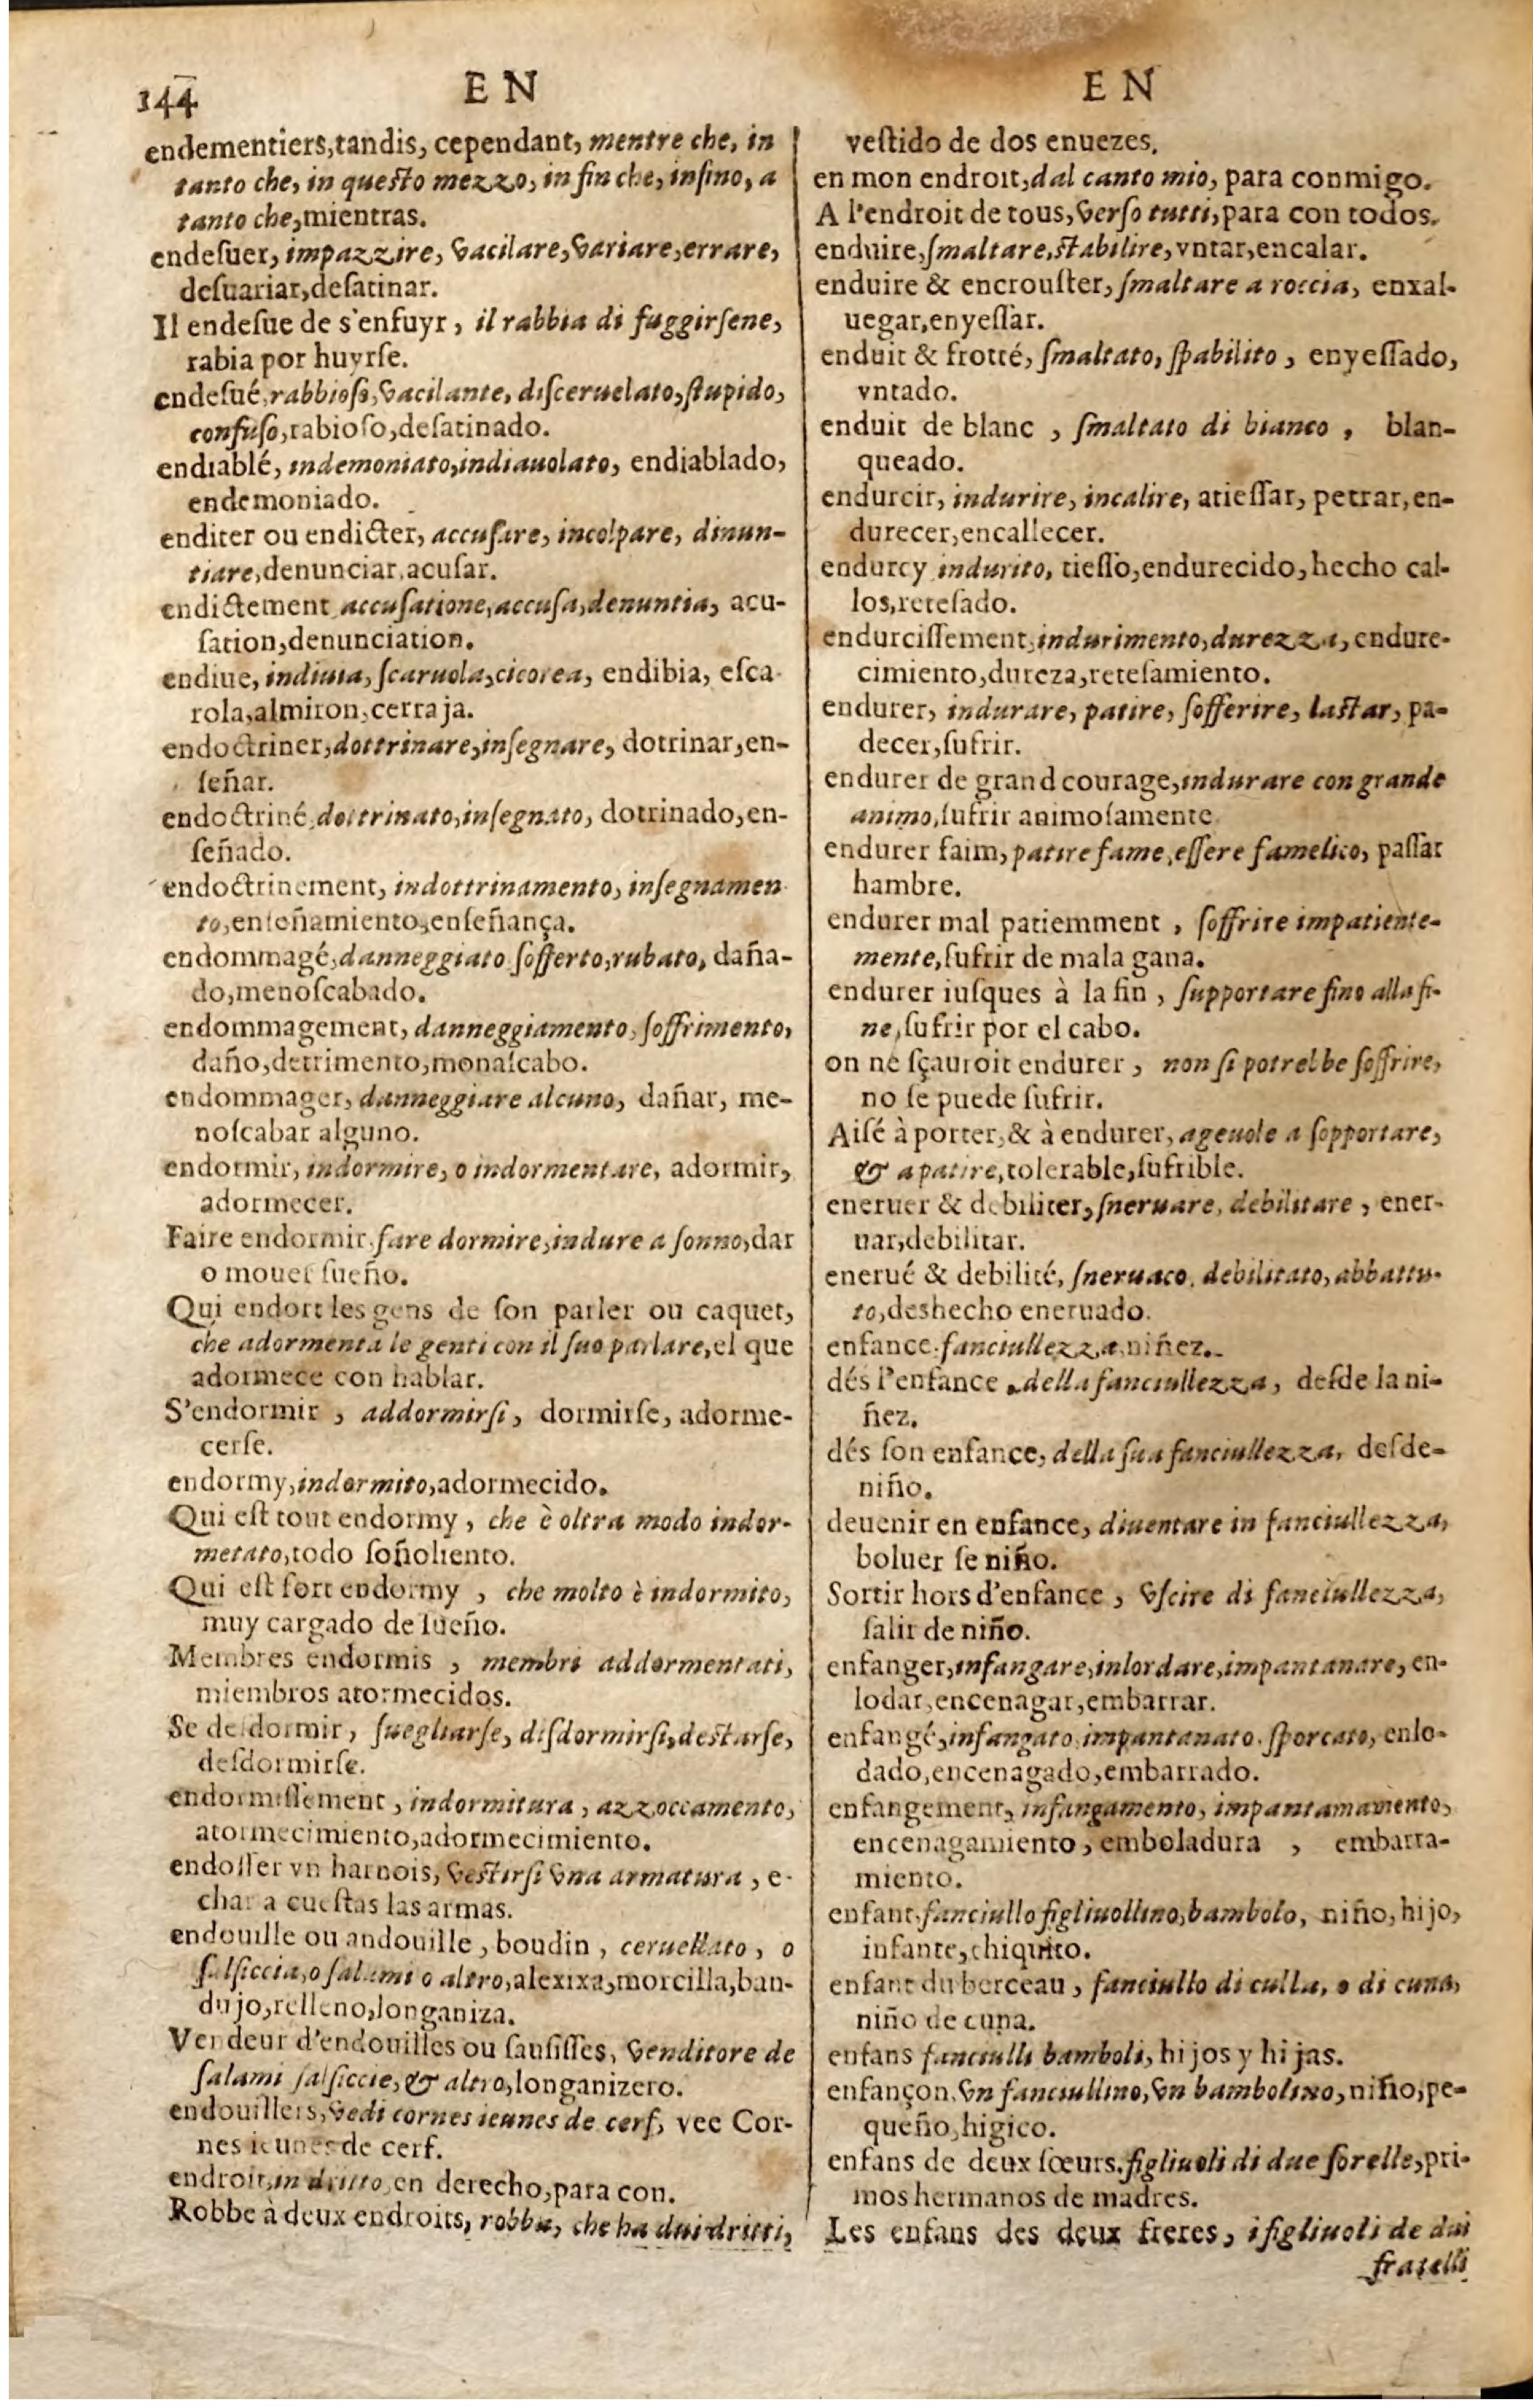 144
EN
EN
endementiers,tandis, cependant, mentre che, in
tanto che, in questo mezzo, in fin che, insino, a
tanto che,mientras.
endeſuer, impazzire, vacilare,variare,errare,
deſuariar,deſatinar.
Il endeſue de s'enfuyr, il rabbia di fuggirſene,
rabia por huyrſe.
endeſué,rabbioſo,vacilante, diſceruelato,ſtupido,
confuſo,rabioſo,deſatinado.
endiablé, indemoniato,indiauolato, endiablado,
endemoniado.
enditer ou endicter, accuſare, incolpare, dinun-
tiare,denunciar,acuſar.
endictement accuſatione,accuſa,denuntia, acu-
ſation,denunciation.
endiue, indiuia, ſcaruola,cicorea, endibia, eſca-
rola,almiron,cerraja.
endoctriner,dottrinare,inſegnare, dotrinar,en-
ſeñar.
endoctriné,dottrinato,inſegnato, dotrinado,en-
ſeñado.
endoctrinement, indottrinamento, inſegnamen
to,enſeñamiento,enſeñança.
endommagé,danneggiato ſofferto,rubato, daña-
do,menoſcabado.
endommagement, danneggiamento, ſoffrimento,
daño,detrimento,monaſcabo.
endommager, danneggiare alcuno, dañar, me-
noſcabar alguno.
endormir, indormire, o indormentare, adormir,
adormecer.
Faire endormir, fare dormire,indure a ſonno,dar
o mouer ſueño.
Qui endort les gens de ſon parler ou caquet,
che adormenta le genti con il ſuo parlare,el que
adormece con hablar.
S'endormir, addormirſi, dormirſe, adorme-
cerſe.
endormy,indormito,adormecido.
Qui eſt tout endormy, che è oltra modo indor-
metato,todo ſoñoliento.
Qui eſt fort endormy, che molto è indormito,
muy cargado de ſueño.
Membres endormis, membri addormentati,
miembros atormecidos.
Se deſdormir, ſuegliarſe, diſdormirſi,deſtarſe,
deſdormirſe.
endormiſſement, indormitura, azzoccamento,
atormecimiento,adormecimiento.
endoſſer vn harnois, veſtirſi vna armatura, e-
char a cueſtas las armas.
endouille ou andouille, boudin, ceruellato, o
ſalſiccia,o ſalami o altro,alexixa,morcilla,ban-
dujo,relleno,longaniza.
Vendeur d'endouilles ou ſauſiſſes, venditore de
ſalami ſalſiccie, & altro,longanizero.
endouillers,vedi cornes ieunes de cerf, vee Cor-
nes ieunes de cerf.
endroit,in dritto,en derecho,para con.
Robbe à deux endroits, robba, che ha dui dritti,
veſtido de dos enuezes.
en mon endroit,dal canto mio, para conmigo.
A l'endroit de tous,verſo tutti,para con todos.
enduire,ſmaltare,ſtabilire,vntar,encalar.
enduire & encrouſter, ſmaltare a roccia, enxal-
uegar,enyeſſar.
enduit & frotté, ſmaltato, ſpabilito, enyeſſado,
vntado.
enduit de blanc, ſmaltato di bianco, blan-
queado.
endurcir, indurire, incalire, atieſſar, petrar,en-
durecer,encallecer.
endurcy indurito, tieſſo,endurecido,hecho cal-
los,reteſado.
endurciſſement,indurimento,durezza, endure-
cimiento,dureza,reteſamiento.
endurer, indurare, patire, ſofferire, laſtar, pa-
decer,ſufrir.
endurer de grand courage,indurare con grande
animo,ſufrir animoſamente
endurer faim,patire fame,eſſere famelico, paſſar
hambre.
endurer mal patiemment, ſoffrire impatiente-
mente,ſufrir de mala gana.
endurer iuſques à la fin, ſupportare fino alla fi-
ne,ſufrir por el cabo.
on ne ſçauroit endurer, non ſi potrebbe ſoffrire,
no ſe puede ſufrir.
Aiſé à porter,& à endurer, ageuole a ſopportare,
& a patire,tolerable,ſufrible.
eneruer & debiliter,ſneruare, debilitare, ener-
uar,debilitar.
enerué & debilité, ſneruaco, debilitato, abbattu-
to,deshecho eneruado.
enfance,fanciullezza,niñez.
dés l'enfance,della fanciullezza, deſde la ni-
ñez.
dés ſon enfance, della ſua fanciullezza, deſde-
niño.
deuenir en enfance, diuentare in fanciullezza,
boluer ſe niño.
Sortir hors d'enfance, vſcire di fanciullezza,
ſalir de niño.
enfanger,infangare,inlordare,impantanare, en-
lodar,encenagar,embarrar.
enfangé,infangato,impantanato,ſporcato, enlo-
dado,encenagado,embarrado.
enfangement, infangamento, impantamamento,
encenagamiento, emboladura, embarra-
miento.
enfant,fanciullo figliuollino,bambolo, niño,hijo,
infante,chiquito.
enfant du berceau, fanciullo di culla, o di cuna,
niño de cuna.
enfans fanciulli bamboli, hijos y hijas.
enfançon,vn fanciullino,vn bambolino,niño,pe-
queño,higico.
enfans de deux ſœurs,figliuoli di due ſorelle,pri-
mos hermanos de madres.
Les enfans des deux freres, i figliuoli de dui
fratelli